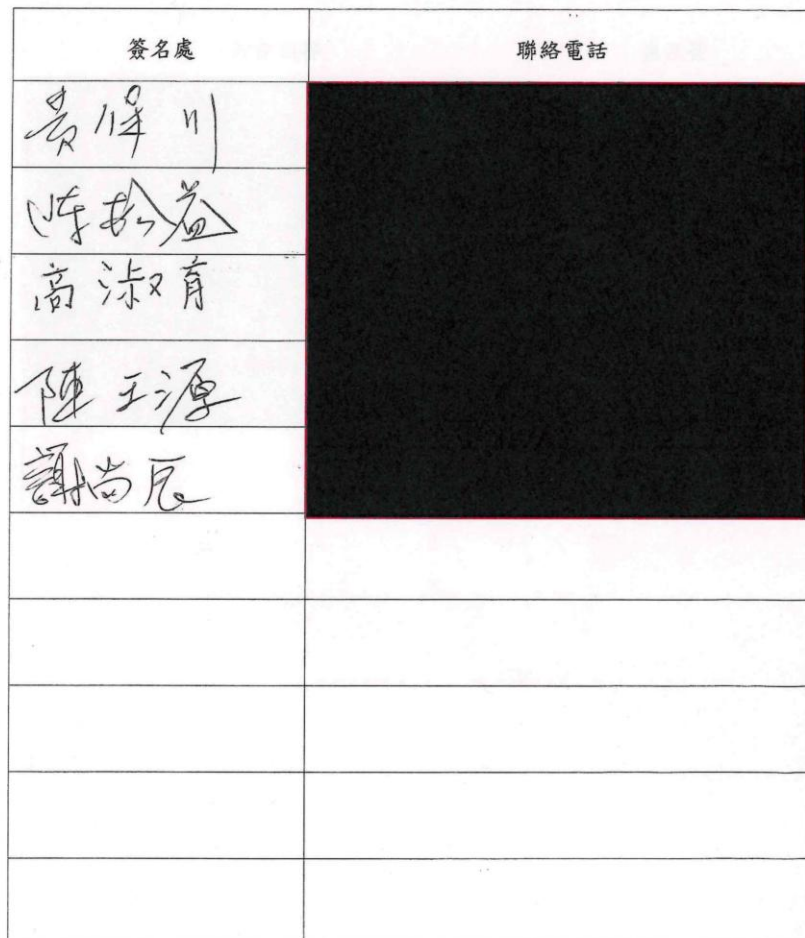 簽名處
聯絡電話
黃保川
陳松益
高淑育
陳玉源
謝尚辰